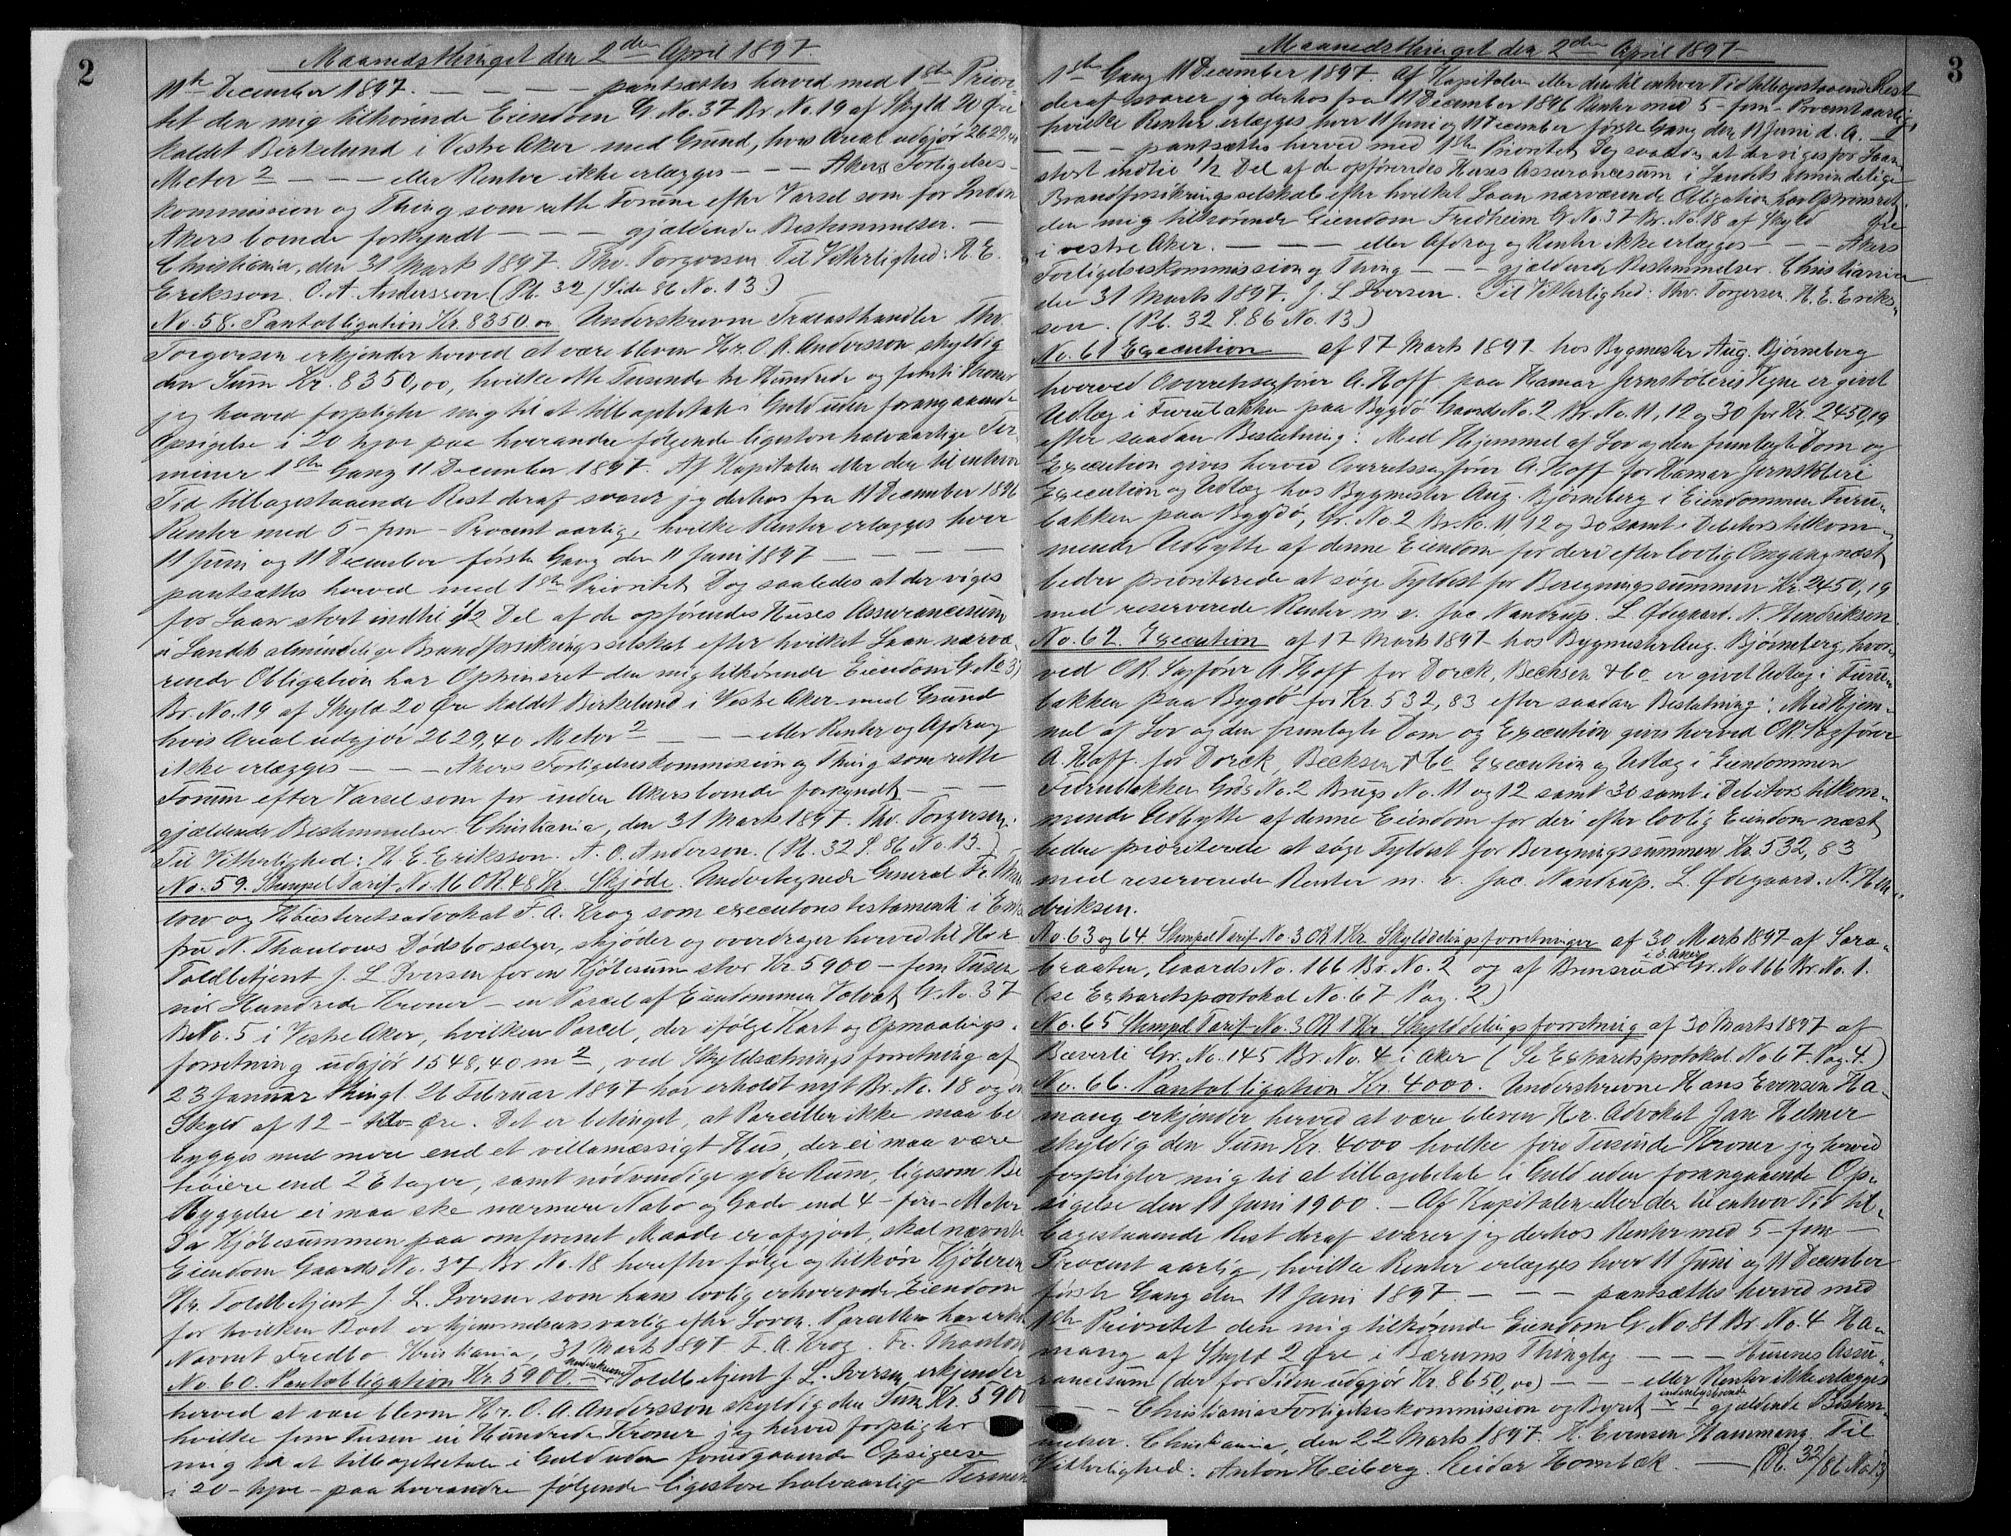 2
Maanedsthinget den 2den April 1897
11te December 1897. — — — — pantsættes herved med 1ste Priori-
tet den mig tilhørende Eiendom G. No. 37 Br. No. 19 af Skyld 20 Øre
kaldet Birkelund i Vestre Aker med Grund, hvis Areal udgjør 2629,40
Meter 2 — — — eller Renter ikke erlægges — — — Akers Forligelses-
kommission og Thing som rette Forum efter Varsel som for inden
Akers boende forkyndt — — — gjældende Bestemmelser. —
Christiania, den 31 Marts 1897. Thv. Torgersen Til Vitterlighed: H. E.
Eriksson. O. A. Andersson. (Pb. 32 / Side 86 No. 13.)
No. 58. Pantobligation Kr. 8350.00 Underskrevne Trælasthandler Thv.
Torgersen erkjender herved at være bleven Hr. O. A. Andersson skyldig
den Sum Kr. 8350,00, hvilke otte Tusende tre Hundrede og femti Kroner
jeg herved forpligter mig til at tilbagebetale i Guld uden forangaaende
Opsigelse i 20 tyve paa hverandre følgende ligestore halvaarlige Ter-
miner 1ste Gang 11 December 1897. Af Kapitalen eller den til enhver
Tid tilbagestaaende Rest deraf svarer jeg derhos fra 11 December 1896
Renter med 5 – fem – Procent aarlig, hvilke Renter erlægges hver
11 Juni og 11 December første Gang den 11 Juni 1897 — — — —
pantsættes herved med 1ste Prioritet Dog saaledes at der viges
for Laan stort indtil 1/2 Del af de opførendes Huses Assurancesum
i Landets almindelige Brandforsikringsselskab efter hvilket Laan nærvæ-
rende Obligation har Oprinsret den mig tilhørende Eiendom G. No 37
Br. No. 19 af Skyld 20 Øre kaldet Birkelund i Vestre Aker med Grund
hvis Areal udgjør 2629,40 Meter 2 — — — eller Renter og Afdrag
ikke erlægges — — — Akers Forligelseskommission og Thing som rette
Forum efter Varsel som for inden Akers boende forkyndt — — —
gjældende Bestemmelser. Christiania, den 31 Marts 1897. Thv. Torgersen.
Til Vitterlighed: H. E. Eriksson. A. O. Anderson. (Pb. 32 S. 86 No. 13.)
No. 59. Stempel Tarif No. 16 OR. 48 Kr. Skjøde. Undertegnede General Fr. Thau-
low og Høiesteretsadvokat F. A. Krog som executores testamenti i Enke-
fru N. Thaulows Dødsbo sælger, skjøder og overdrager herved til Herr
Toldbetjent J. L. Iversen for en Kjøbesum stor Kr. 5900 – fem Tusen
ni Hundrede Kroner – en Parcel af Eiendommen Volvat G. No. 37
B. No. 5 i Vestre Aker, hvilken Parcel, der ifølge Kart og Opmaalings-
forretning udgjør 1548,40 m2, ved Skyldsætningsforretning af
23 Januar thingl. 26 Februar 1897 har erholdt nyt Br. No. 18 og en
Skyld af 12 – tolv Øre. Det er betinget, at Parcellen ikke maa be-
bygges med mere end et villamæssigt Hus, der ei maa være
høiere end 2 Etager, samt nødvendige ydre Rum, ligesom Be-
byggelse ei maa ske nærmere Nabo og Gade end 4 – fire – Meter
Da Kjøbesummen paa omforenet Maade er afgjort, skal nævnte
Eiendom Gaards No. 37 Br. No. 18 herefter følge og tilhøre Kjøberen
Hr. Toldbetjent J. L. Iversen som hans lovlig erhvervede Eiendom
for hvilken Boet er hjemmelsansvarlig efter Loven. Parcellen har erholdt
Navnet Fredbo. Kristiania, 31 Marts 1897. F. A. Krog. Fr. Thaulow
No. 60. Pantobligation Kr. 5900.— Underskrevne Toldbetjent J. L. Iversen, erkjender
herved at være bleven Hr. O. A. Andersson skyldig den Sum Kr. 5900
hvilke fem Tusen ni Hundrede Kroner jeg herved forpligter
mig til at tilbagebetale i Guld uden foregaaende Opsigelse
i 20 – tyve – paa hverandre følgende ligestore halvaarlige Terminer
3
Maanedsthinget den 2den April 1897
1ste Gang 11 December 1897. Af Kapitalen eller den til enhver Tid tilbagestaaende Rest
deraf svarer jeg derhos fra 11 December 1896 Renter med 5 – fem – Procent aarlig,
hvilke Renter erlægges hver 11 Juni og 11 December første Gang den 11 Juni d. A. —
— — — pantsættes herved med 1ste Prioritet, Dog saaledes at der viges for Laan
stort indtil 1/2 Del af de opførendes Huses Assurancesum i Landets almindelige
Brandforsikringsselskab efter hvilket Laan nærværende Obligation har Oprinsret
den mig tilhørende Eiendom Fredheim G. No. 37 Br. No. 18 af Skyld Øre
i vestre Aker. — — — — eller Afdrag og Renter ikke erlægges — — — Akers
Forligelseskommission og Thing — — — gjældende Bestemmelser. Christiania
den 31 Marts 1897. J. L Iversen. Til Vitterlighed: Thv. Torgersen. H. E. Eriks-
son. (Pb. 32 S. 86 No. 13)
No. 61 Execution af 17 Marts 1897 hos Bygmester Aug. Bjørneberg
hvorved Overretssagfører A. Hoff paa Hamar Jernstøberis Vegne er givet
Udlæg i Furubakken paa Bygdø Gaards No. 2 Br. No. 11, 12 og 30 for Kr. 2450,19
efter saadan Beslutning: Med Hjemmel af Lov og den fremlagte Dom og
Execution gives herved Overretssagfører A. Hoff for Hamar Jernstøberi
Execution og Udlæg hos Bygmester Aug. Bjørneberg i Eiendommen Furu-
bakken paa Bygdø, Gr. No. 2 Br. No. 11, 12 og 30 samt i Debitors tilkom-
mende Udbytte af denne Eiendom for deri efter lovlig Omgang næst
bedre prioriterede at søge Fyldest for Beregningssummen Kr. 2450,19
med reserverede Renter m. v. Jac. Nandrup. L. Ødegaard. N. Hendriksen.
No. 62. Execution af 17 Marts 1897 hos Bygmester Aug. Bjørneberg, hvor-
ved OR. Sagfører A. Hoff for Dorck, Becksen & Co. er givet Udlæg i Furu-
bakken paa Bygdø for Kr. 532,83 efter saadan Beslutning: Med Hjem-
mel af Lov og den fremlagte Dom og Execution gives herved OR. Sagfører
A. Hoff for Dorck, Becksen & Co. Execution og Udlæg i Eiendommen
Furubakken Grds No. 2 Brugs No. 11 og 12 samt 30 samt i Debitors tilkom-
mende Udbytte af denne Eiendom for deri efter lovlig Eiendom næst
bedre prioriterede at søge Fyldest for Beregningssummen Kr. 532,83
med reserverede Renter m. v. Jac. Nandrup. L. Ødegaard. N. Hen-
driksen.
No. 63 og 64 Stempel Tarif No. 3 OR 1 Kr Skylddelingsforretninger af 30 Marts 1897 af Sara-
braaten, Gaards No. 166 Br. No. 2 og af Brensrud i Ø. Aker Gr. No 166 Br. No. 1.
(se Extractsprotokol No. 67 Pag. 2.)
No. 65 Stempel Tarif No. 3 OR 1 Kr. Skylddelingsforretning af 30 Marts 1897 af
Bæverli Gr. No. 145 Br. No. 4 i Aker (Se Extraktsprotokol No 67 Pag. 4.)
No. 66. Pantobligation Kr. 4000. Underskrevne Hans Evensen Ha-
mang erkjender herved at være bleven Hr. Advokat Jan Helmer
skyldig den Sum Kr. 4000 hvilke fire Tusinde Kroner jeg herved
forpligter mig til at tilbagebetale i Guld uden forangaaende Op-
sigelse den 11 Juni 1900. — Af Kapitalen eller den til enhver Tid til-
bagestaaende Rest deraf svarer jeg derhos Renter med 5 – fem —
Procent aarlig, hvilke Renter erlægges hver 11 Juni og 11 December
første Gang den 11 Juni 1897. — — — pantsættes herved med
1ste Prioritet den mig tilhørende Eiendom Gr. No 81 Br. No. 4 Ha-
mang af Skyld 2 Øre i Bærums Thinglag — — — Husenes Assu-
rancesum (der for Tiden udgjør Kr. 8650,00) — — — eller Renter ikke erlægges
— — — Christiania Forligelseskommission og Byret indenbysboende gjældende Bestem-
melser. Christiania, den 22 Marts 1897. H. Evensen Hammang. Til
Vitterlighed: Anton Heiberg. Reidar Hornbæk — (Pb. 32/86 No 13)